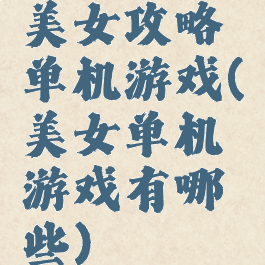 美女攻略
单机游戏(
美女单机
游戏有哪
些)